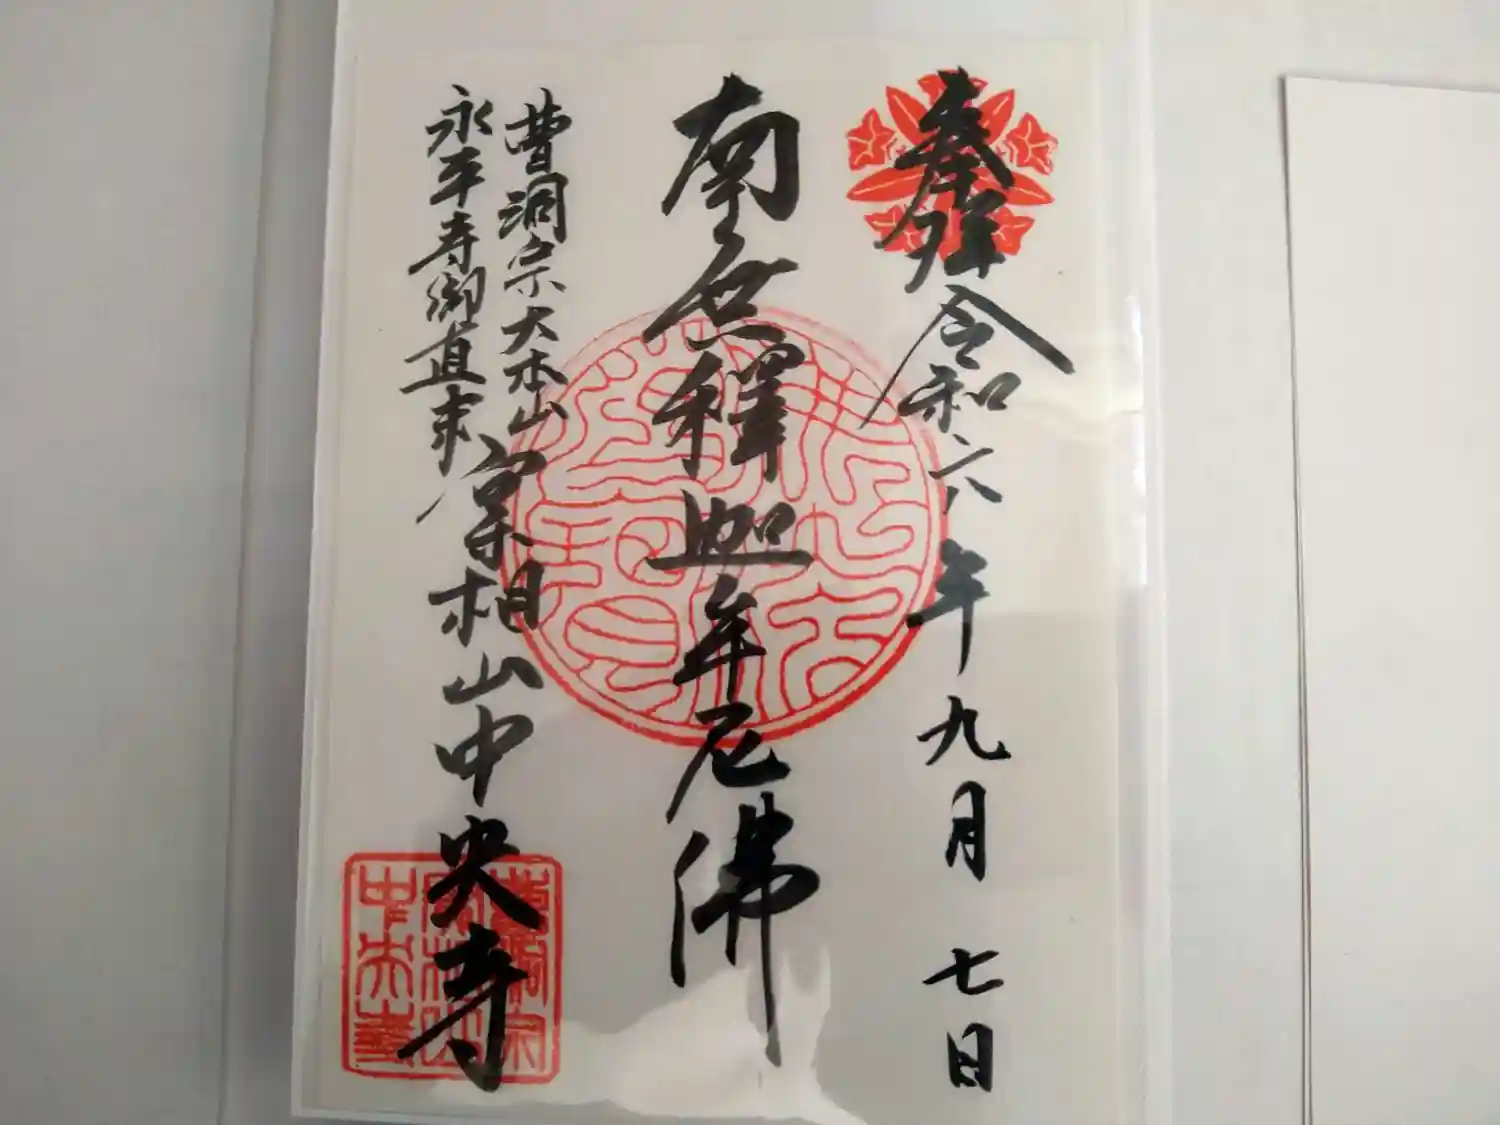 奉拝 令和六年九月七日
南無釋迦牟尼佛
曹洞宗大本山
永平寺御直末
実相山中央寺
曹洞宗
実相山
中央寺